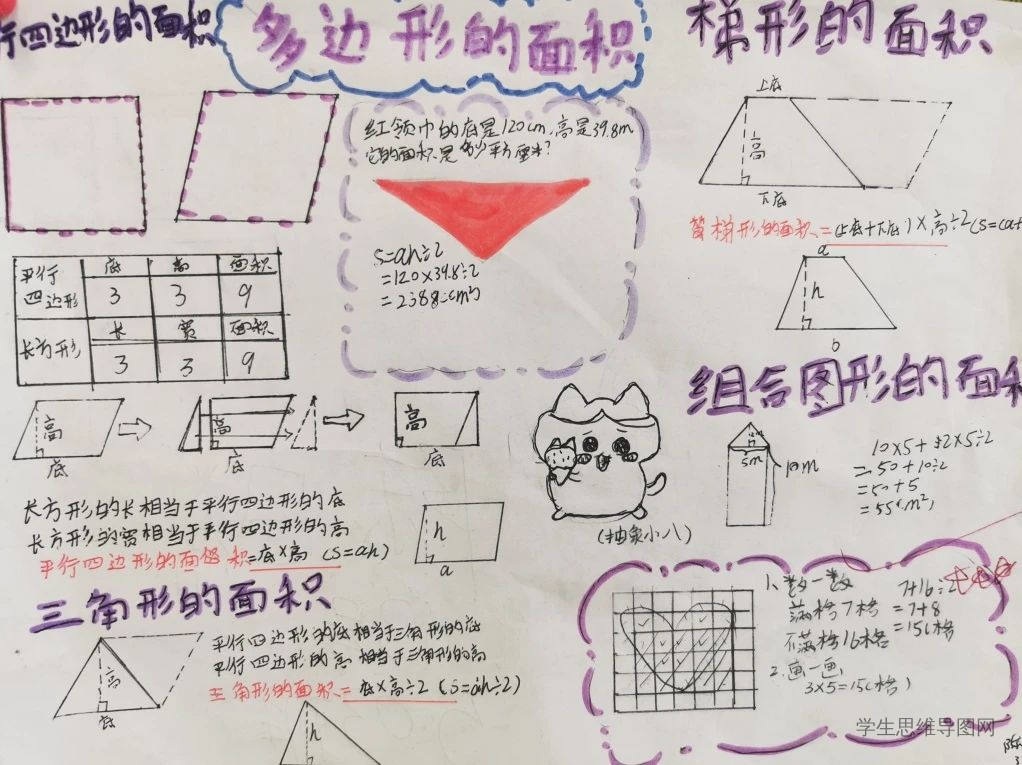 行四边形的面积
多边形的面积
梯形的面积
红领巾的底是120cm,高是39.8m
它的面积是多少平方厘米?
S=ah÷2
=120×39.8÷2
=2388(cm²)
平行四边形
底 高 面积
3 3 9
长方形
长 宽 面积
3 3 9
高
底
高
底
高
底
长方形的长相当于平行四边形的底
长方形的宽相当于平行四边形的高
平行四边形的面积=底×高 (S=ah)
h
a
三角形的面积
高
底
平行四边形的底相当于三角形的底
平行四边形的高 相当于三角形的高
三角形的面积=底×高÷2(S=ah÷2)
h
上底
高
下底
梯形的面积=(上底+下底)×高÷2(S=(a+
a
h
b
组合图形的面积
2m
5m
10m
10×5+
2×5÷2
=50+10÷2
=50+5
=55(m²)
(抽象小八)
1、数一数
满格7格
不满格16格
7+16÷2
=7+8
=15(格)
2.画一画
3×5=15(格)
学生思维导图网